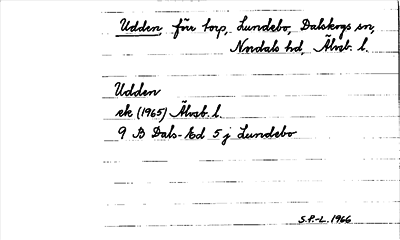 Udden, förr torp, Lundebo, Dalskogs sn,
Nordals hd, Älvsb. l.
Udden
ek (1965) Älvsb. l.
9 B Dals-Ed 5 j Lundebo
S.P.-L. 1966